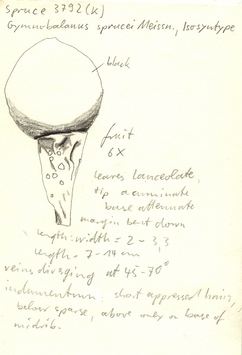 Spruce 3792 (K)
Gymnobalanus sprucei Meissn., Isosyntype
black
fruit
6X
leaves lanceolate,
tip acuminate
base attenuate
margin bent down
length:width = 2 - 3,3
length = 7-14 cm
veins diverging at 45-70°
indumentum: short appressed hairs,
below sparse, above only on base of
midrib.